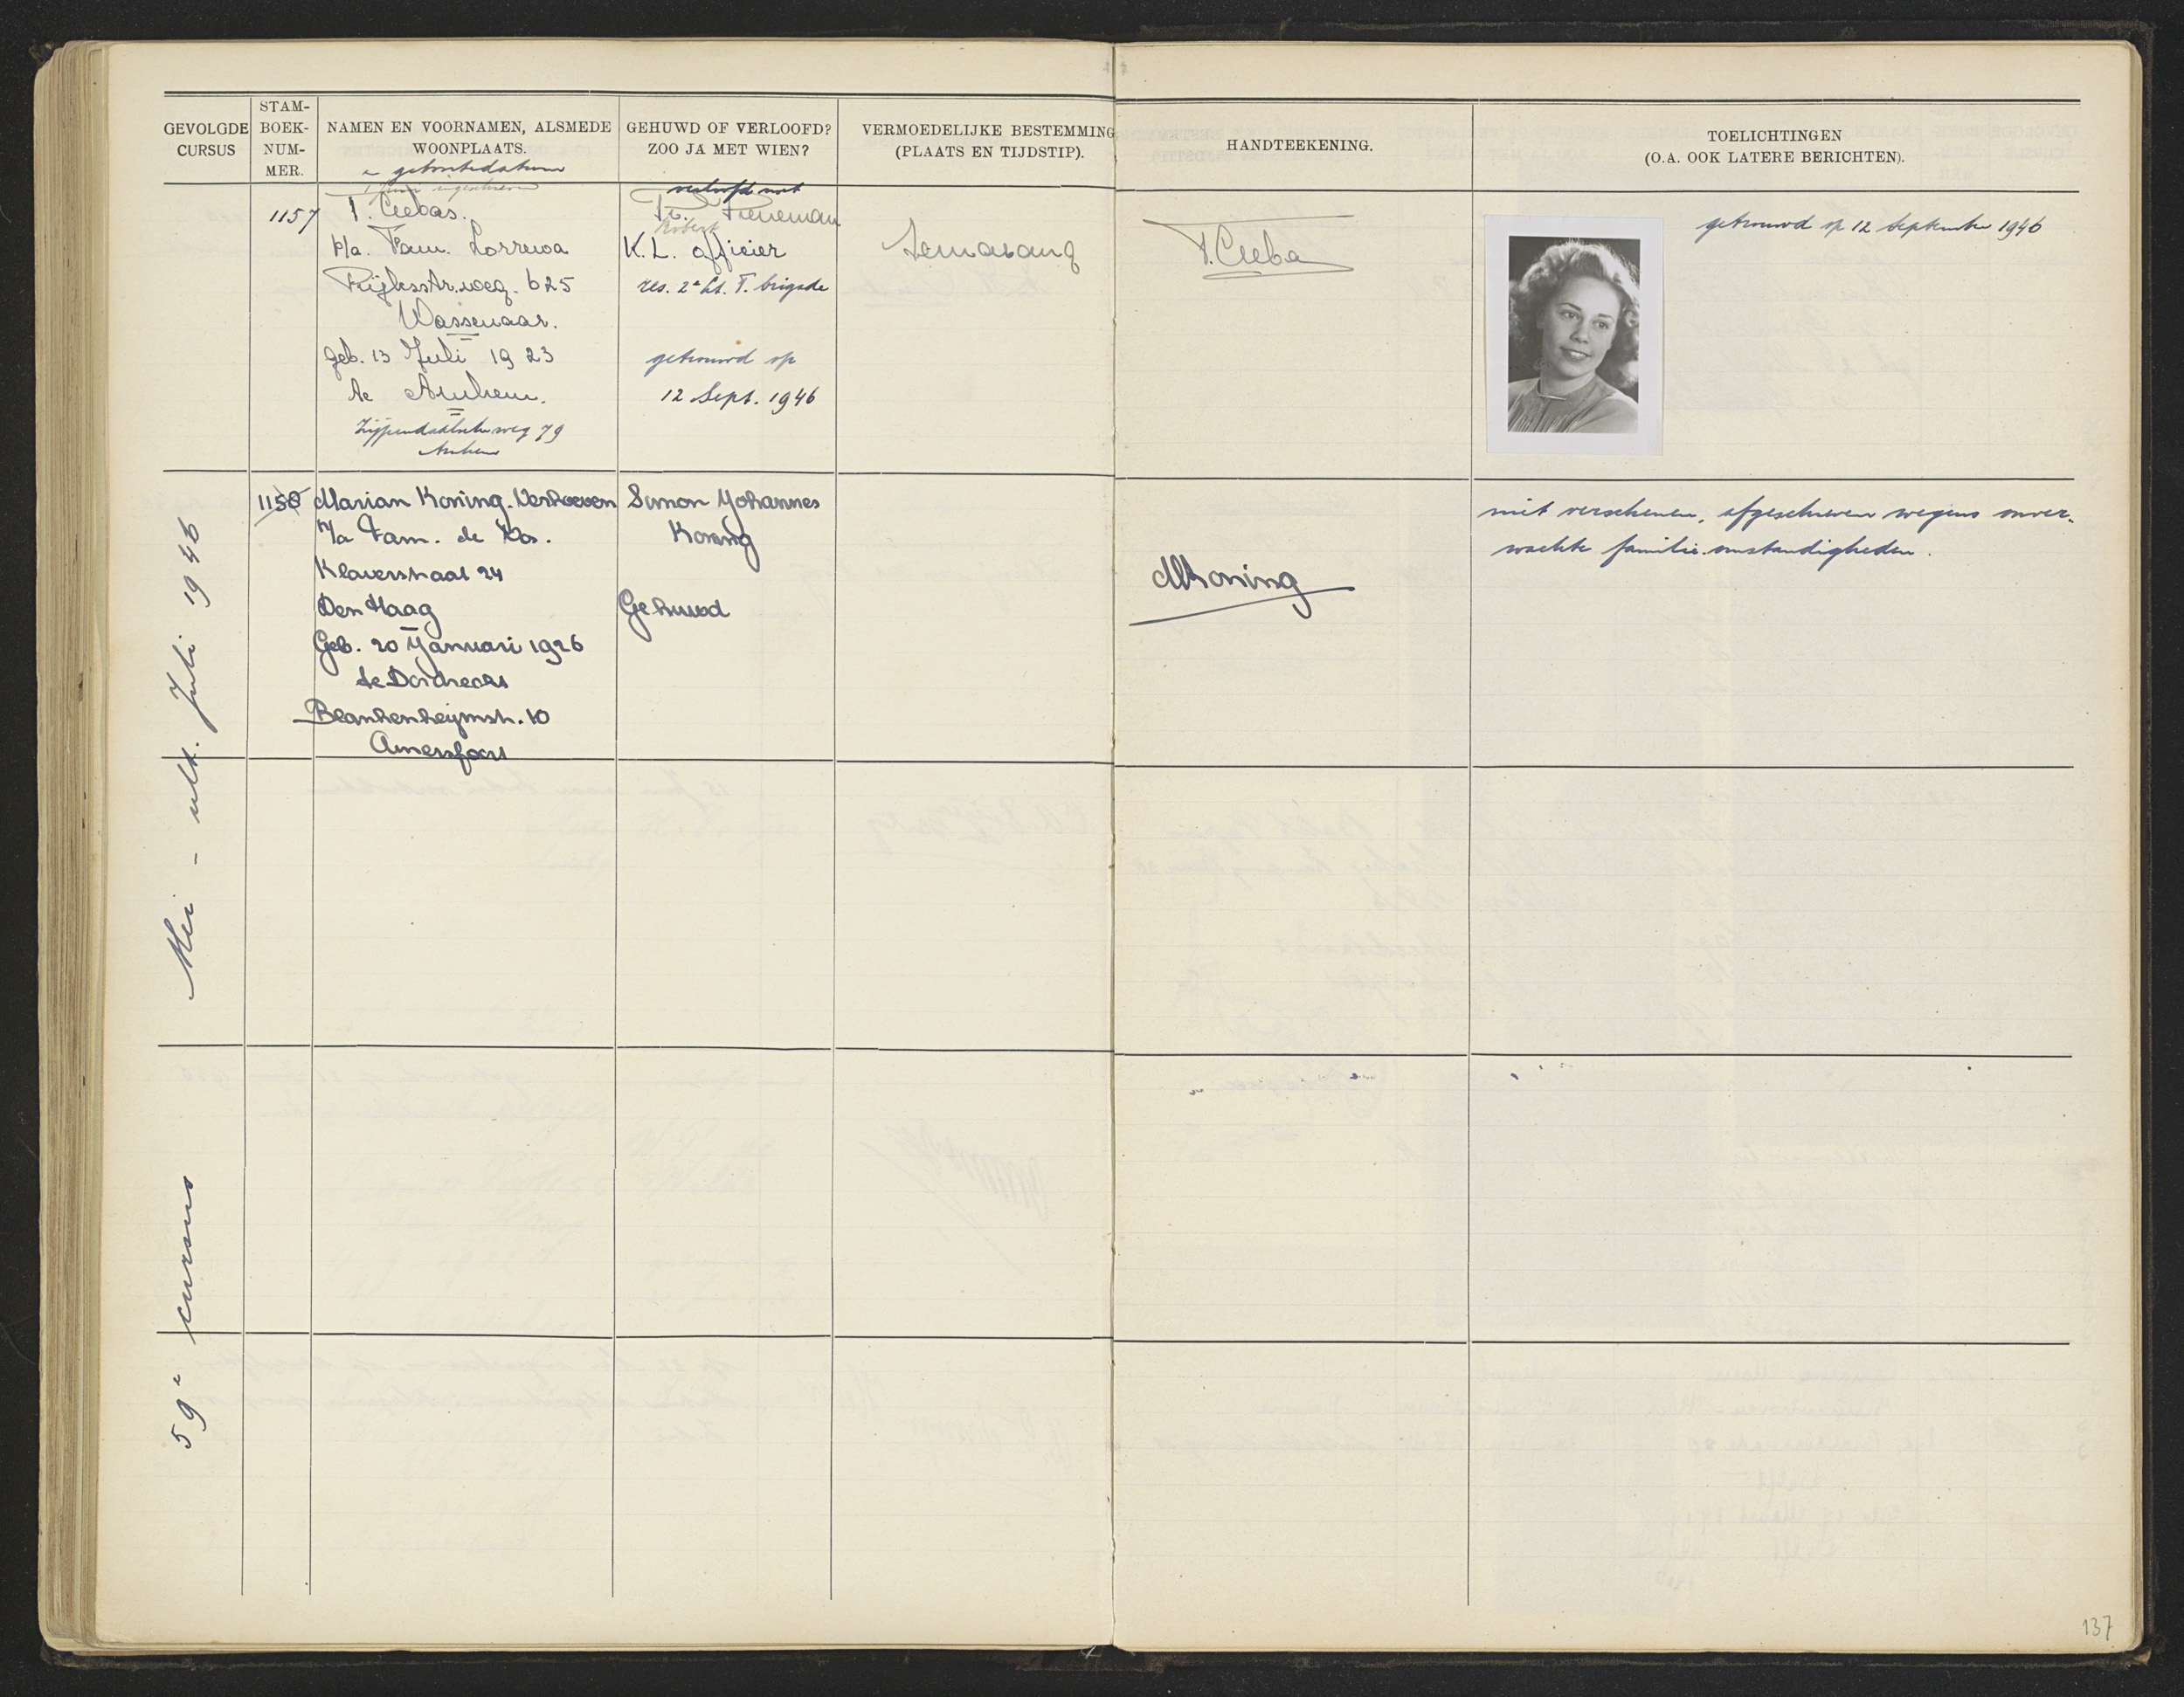 GEVOLGDE CURSUS
STAM-
BOEK-
NUM-
MER.
NAMEN EN VOORNAMEN, ALSMEDE
WOONPLAATS.
geboortedatum
GEHUWD OF VERLOOFD?
ZOO JA MET WIEN?
VERMOEDELIJKE BESTEMMING
(PLAATS EN TIJDSTIP).
HANDTEEKENING.
TOELICHTINGEN
(O.A. OOK LATERE BERICHTEN).
59e cursus Mei - ult. Juli 1946
1157
p/a. Fam. Lorrewa
Rijksstr.weg. 625
Wassenaar.
geb. 13 Juli 1923
te Arnhem.
Zijpendaalscheweg 79
Arnhem
verloofd met
Fr. Pieneman
Robert
K.L. officier
res. 2e Lt. T. brigade
getrouwd op
12 Sept. 1946
Semarang
getrouwd op 12 September 1946
1158
Marian Koning-Verhoeven
p/a Fam. de Vos.
Klaverstraat 24
Den Haag
Geb. 20 Januari 1926
te Dordrecht
Blankenheymstr. 10
Amersfoort
Simon Johannes
Koning
Gehuwd
MKoning
niet verschenen, afgeschreven wegens onver-
wachte familie-omstandigheden.
137